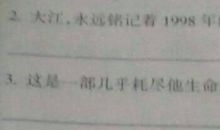 2. 大江,永远铭记着 1998 年
3. 这是一部几乎耗尽他生命